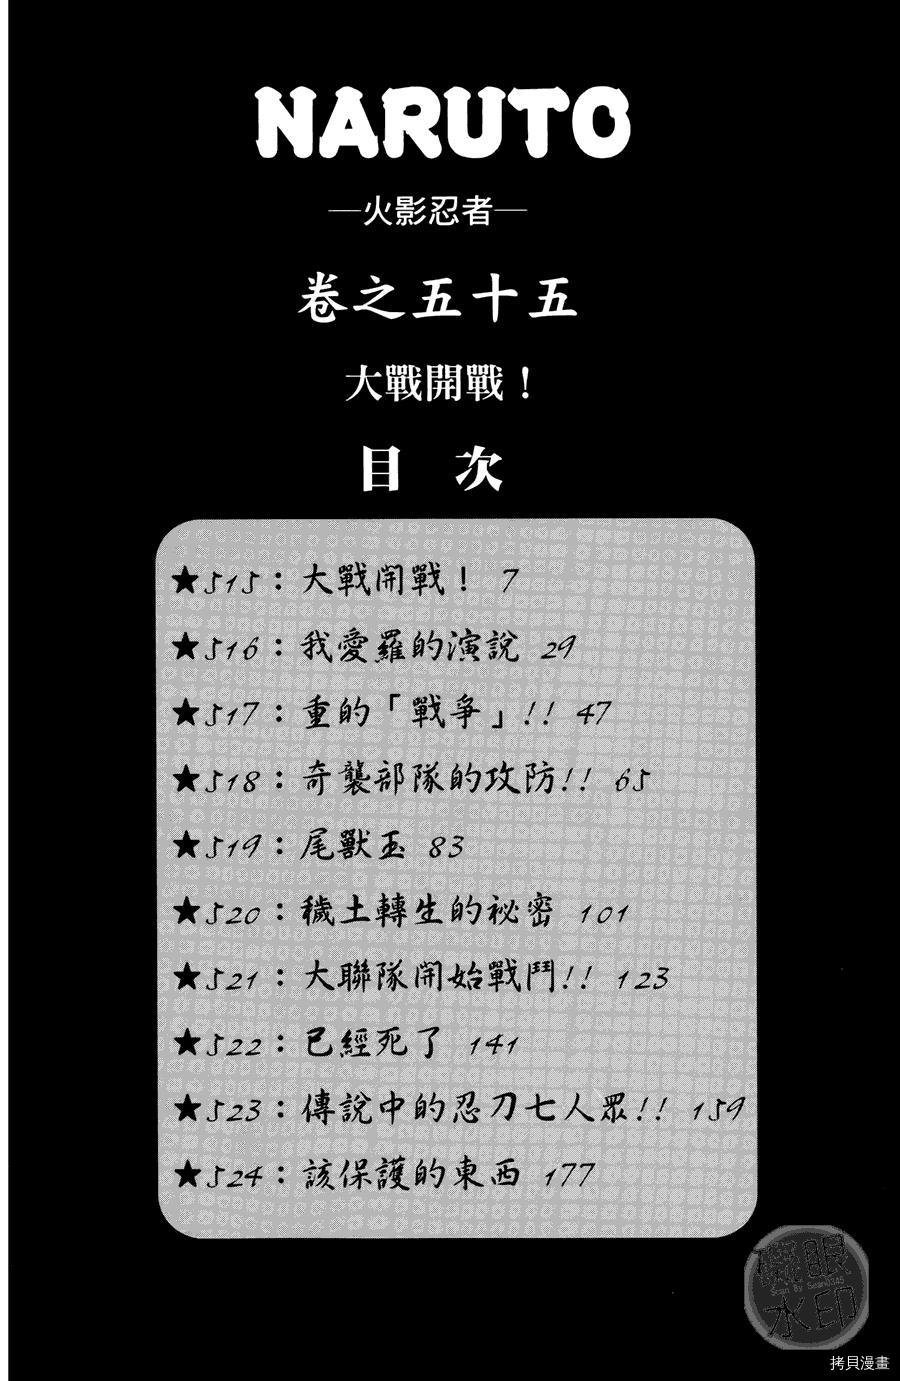 NARUTO
—火影忍者—
卷之五十五
大戰開戰！
目 次
★515：大戰開戰！ 7
★516：我愛羅的演說 29
★517：重的「戰爭」!! 47
★518：奇襲部隊的攻防!! 65
★519：尾獸玉 83
★520：穢土轉生的祕密 101
★521：大聯隊開始戰鬥!! 123
★522：已經死了 141
★523：傳說中的忍刀七人眾!! 159
★524：該保護的東西 177
眼
Scan By
水印
拷貝漫畫